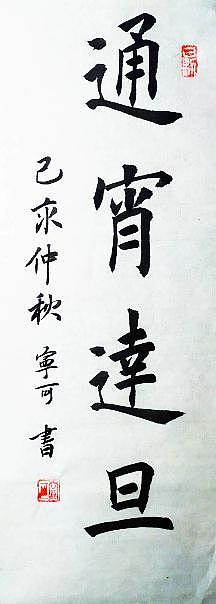 通宵達旦
己亥仲秋 寧可書